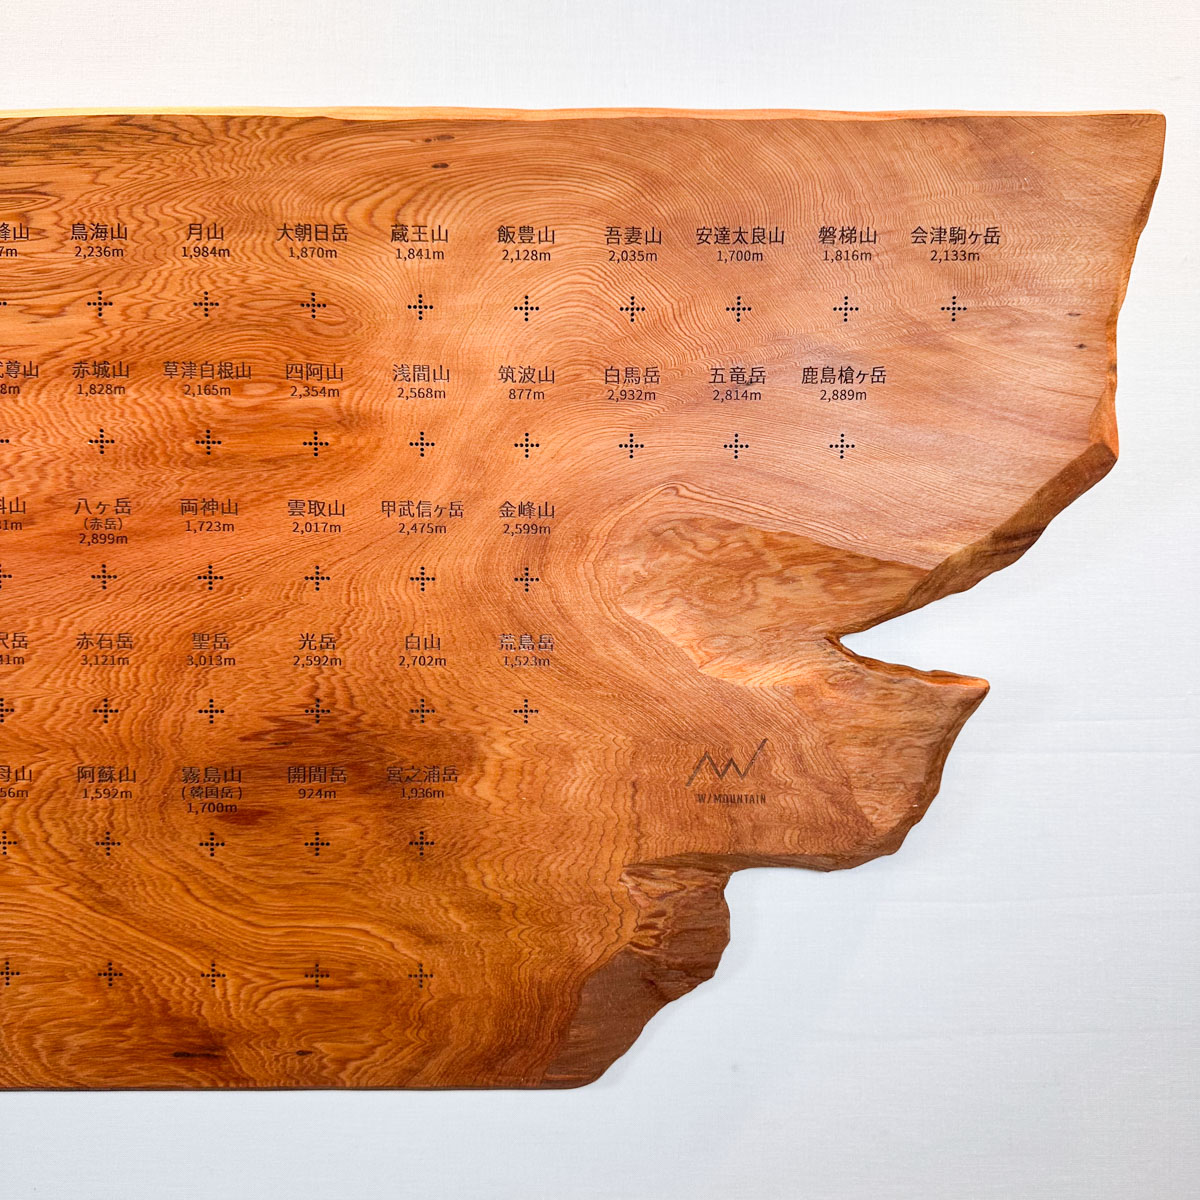 峰山 鳥海山 月山 大朝日岳 蔵王山 飯豊山 吾妻山 安達太良山 磐梯山 会津駒ヶ岳
7m 2,236m 1,984m 1,870m 1,841m 2,128m 2,035m 1,700m 1,816m 2,133m
尊山 赤城山 草津白根山 四阿山 浅間山 筑波山 白馬岳 五竜岳 鹿島槍ヶ岳
8m 1,828m 2,165m 2,354m 2,568m 877m 2,932m 2,814m 2,889m
科山 八ヶ岳 両神山 雲取山 甲武信ヶ岳 金峰山
31m (赤岳) 1,723m 2,017m 2,475m 2,599m
2,899m
沢岳 赤石岳 聖岳 光岳 白山 荒島岳
41m 3,121m 3,013m 2,592m 2,702m 1,523m
母山 阿蘇山 霧島山 開聞岳 宮之浦岳
56m 1,592m (韓国岳) 924m 1,936m
1,700m
W/MOUNTAIN